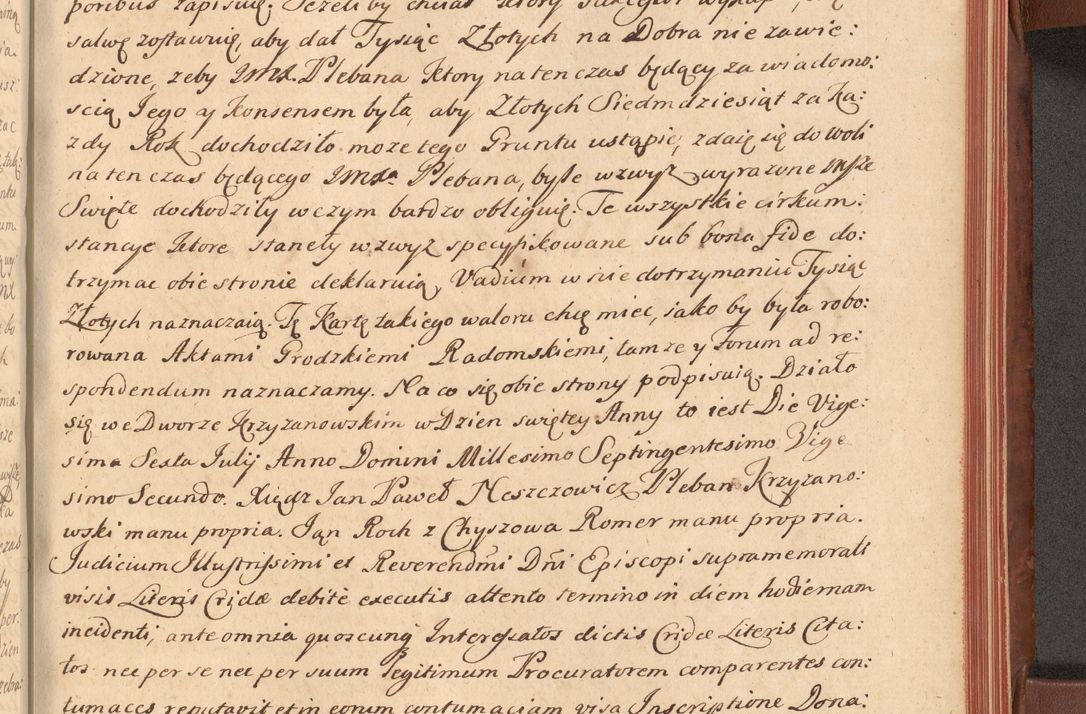 poribus zapisuię. Jeżeliby chciał ktory
salwę zostawuię, aby dał Tysiąc Złotych na Dobra nie zawie:
dzione, zeby JMX. Plebana ktory natenczas będący za wiadomo:
scią Jego y Konsensem była, aby Złotych Siedmdziesiąt za Ka:
zdy Rok dochodziło moze tego Gruntu ustąpic, zdaię się do woli
natenczas będącego JMXa Plebana, byle wzwysz wyrazone Msze
Swięte dochodziły w czym bardzo obliguię. Te wszystkie cirkum:
stancye ktore staneły wzwyż specyfikowane sub bona fide do:
trzymac obie stronie deklaruią, Vadium w nie dotrzymaniu Tysiąc
Złotych naznaczaią. Tę Kartę takiego waloru chcę miec, iako by była robo:
rowana Aktami Grodzkiemi Radomskiemi, tamze y Forum ad re:
spondendum naznaczamy. Na co się obie strony podpisuią. Działo
się we Dworze Krzyzanowskim w Dzien swiętey Anny to iest Die Vige:
sima Sexta Julij Anno Domini Millesimo Septingentesimo Vige
simo Secundo. Xiądz Jan Paweł Neszczowicz Pleban Krzyzano:
wski manu propria. Jan Roch z Chyszowa Romer manu propria.
Judicium Illustrissimi et Reverendmi Dni Episcopi supramemorati
visis Literis Cridæ debite executis attento termino in diem hodiernam
incidenti, ante omnia quoscunq Intergsatos dictis Cridæ Literis Cita:
tos nec per se nec per suum legitimum Procuratorem comparentes con:
tumaces reputavit et in eorum contumaciam visa Inscriptione Dona: